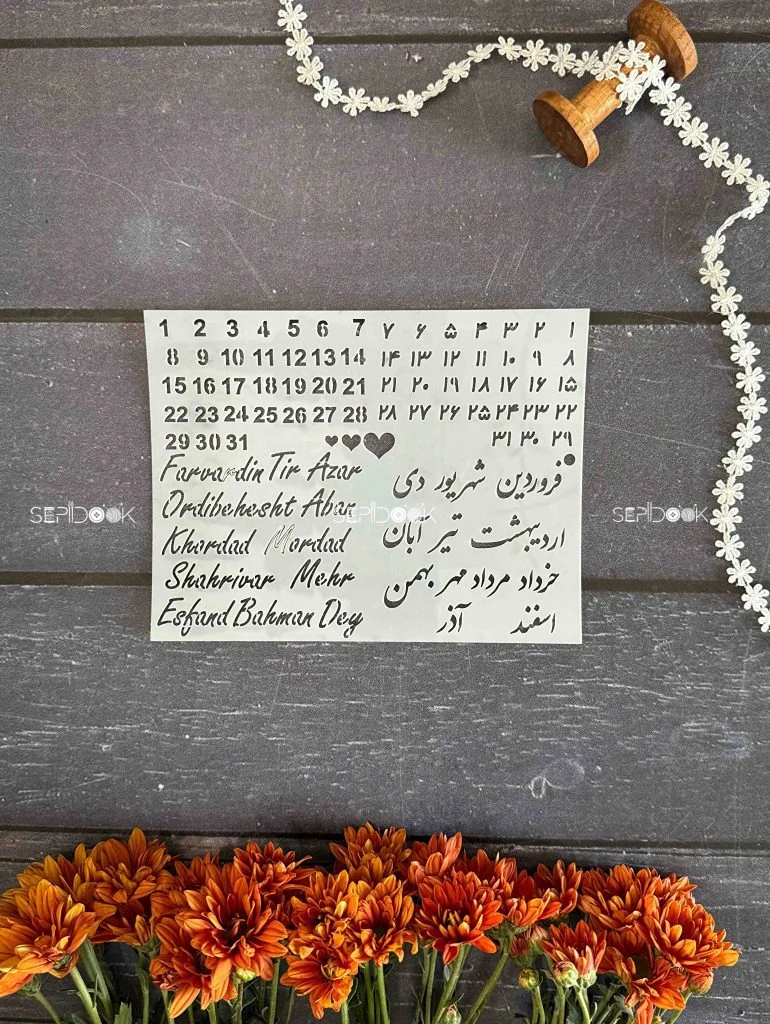 1 2 3 4 5 6 7
8 9 10 11 12 13 14
15 16 17 18 19 20 21
22 23 24 25 26 27 28
29 30 31
Farvardin Tir Azar
Ordibehesht Aban
Khordad Mordad
Shahrivar Mehr
Esfand Bahman Dey
۱ ۲ ۳ ۴ ۵ ۶ ۷
۸ ۹ ۱۰ ۱۱ ۱۲ ۱۳ ۱۴
۱۵ ۱۶ ۱۷ ۱۸ ۱۹ ۲۰ ۲۱
۲۲ ۲۳ ۲۴ ۲۵ ۲۶ ۲۷ ۲۸
۲۹ ۳۰ ۳۱
فروردین شهریور دی
اردیبهشت تیر آبان
خرداد مرداد مهر بهمن
اسفند آذر
SEPIDOOK SEPIDOOK SEPIDOOK